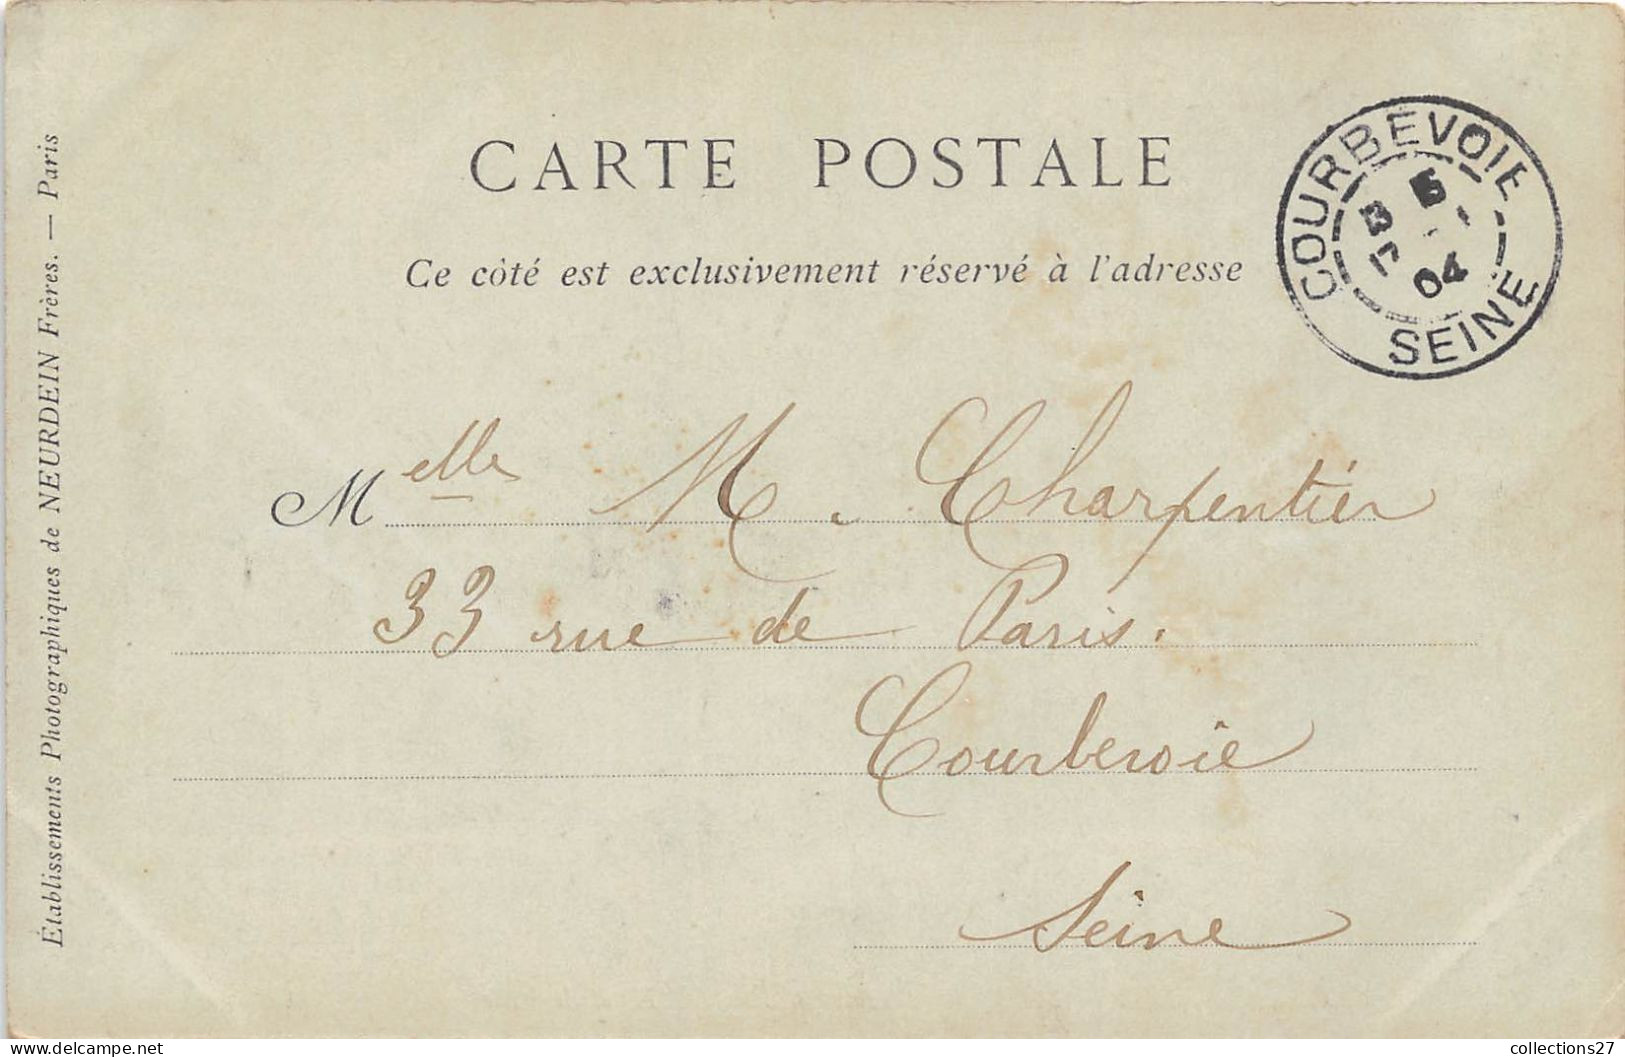 CARTE POSTALE
Ce côté est exclusivement réservé à l'adresse
COURBEVOIE
5
04
SEINE
Melle M. Charpentier
33 rue de Paris.
Courbevoie
Seine
Établissements Photographiques de NEURDEIN Frères. — Paris
delcampe.net
collections27